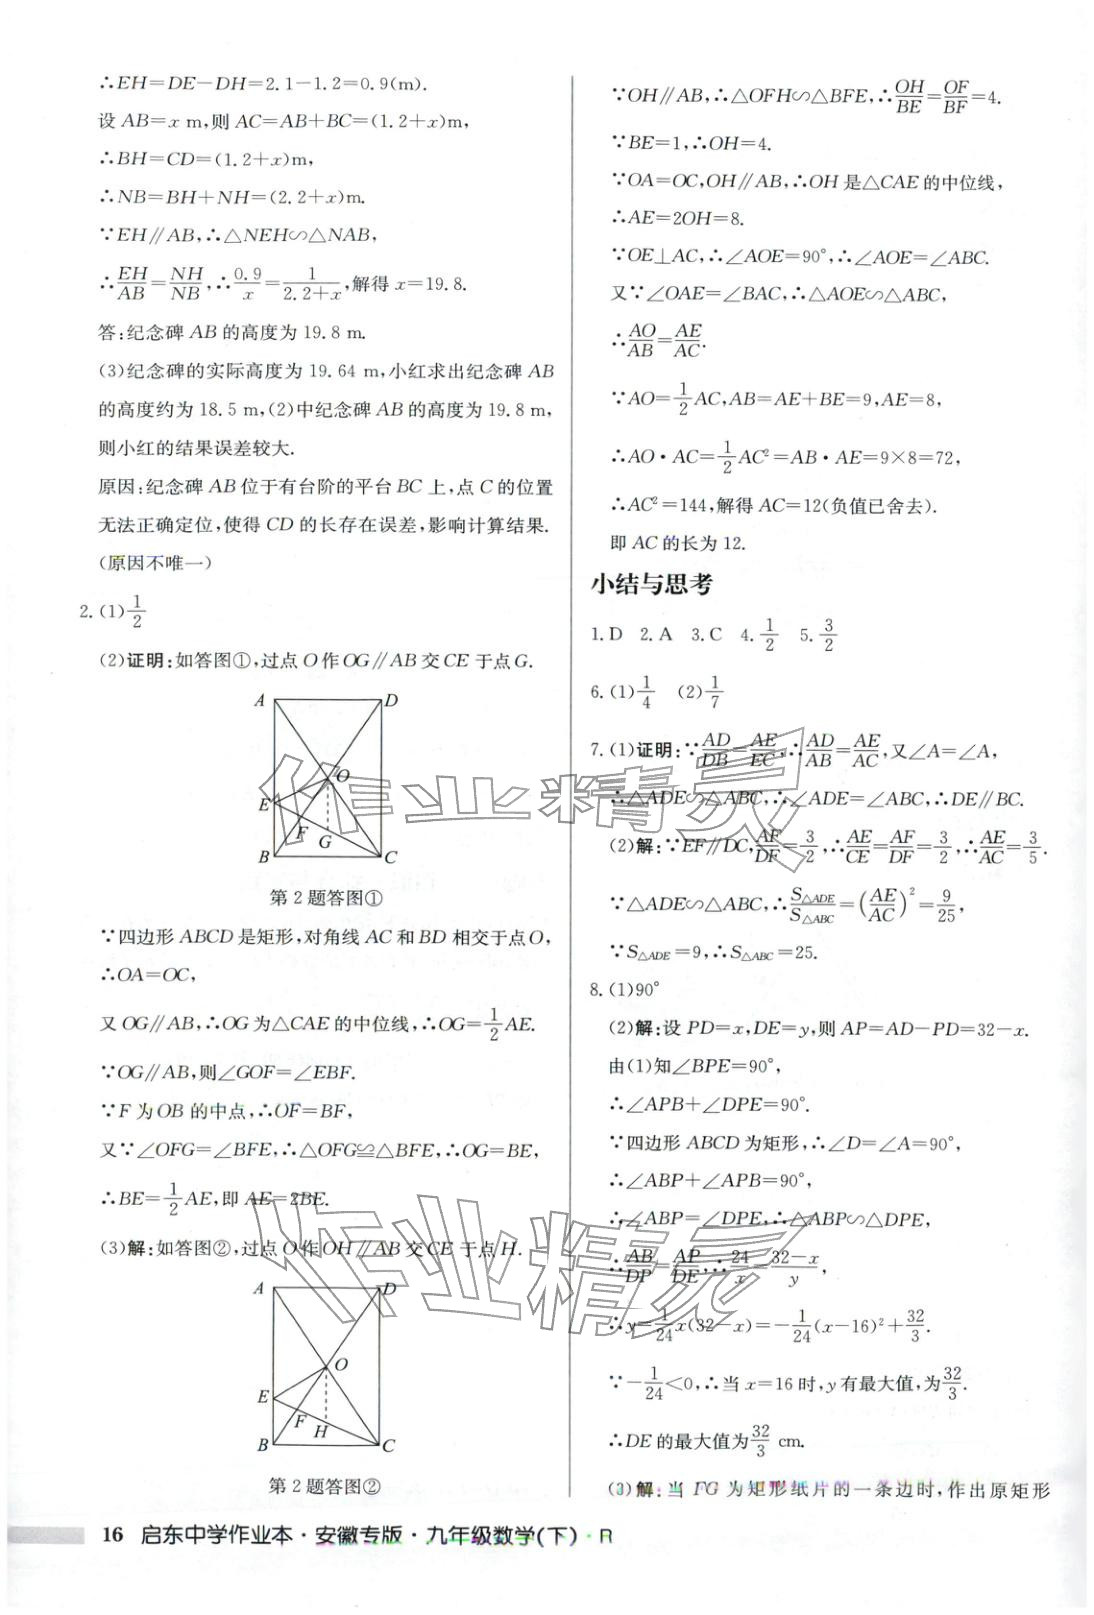 ∴EH=DE-DH=2.1-1.2=0.9(m).
设 AB=x m,则 AC=AB+BC=(1.2+x)m,
∴BH=CD=(1.2+x)m,
∴NB=BH+NH=(2.2+x)m.
∵EH∥AB,∴△NEH∽△NAB,
∴EH/AB=NH/NB,∴0.9/x=1/(2.2+x),解得 x=19.8.
答:纪念碑 AB 的高度为 19.8 m.
(3)纪念碑的实际高度为 19.64 m,小红求出纪念碑 AB
的高度约为 18.5 m,(2)中纪念碑 AB 的高度为 19.8 m,
则小红的结果误差较大.
原因:纪念碑 AB 位于有台阶的平台 BC 上,点 C 的位置
无法正确定位,使得 CD 的长存在误差,影响计算结果.
(原因不唯一)
2.(1)1/2
(2)证明:如答图①,过点 O 作 OG∥AB 交 CE 于点 G.
A D
O
E
F
G
B C
第 2 题答图①
∵四边形 ABCD 是矩形,对角线 AC 和 BD 相交于点 O,
∴OA=OC,
又 OG∥AB,∴OG 为△CAE 的中位线,∴OG=1/2 AE.
∵OG∥AB,则∠GOF=∠EBF.
∵F 为 OB 的中点,∴OF=BF,
又∵∠OFG=∠BFE,∴△OFG≌△BFE,∴OG=BE,
∴BE=1/2 AE,即 AE=2BE.
(3)解:如答图②,过点 O 作 OH∥AB 交 CE 于点 H.
A D
O
E
F
H
B C
第 2 题答图②
∵OH∥AB,∴△OFH∽△BFE,∴OH/BE=OF/BF=4.
∵BE=1,∴OH=4.
∵OA=OC,OH∥AB,∴OH 是△CAE 的中位线,
∴AE=2OH=8.
∵OE⊥AC,∴∠AOE=90°,∴∠AOE=∠ABC.
又∵∠OAE=∠BAC,∴△AOE∽△ABC,
∴AO/AB=AE/AC.
∵AO=1/2 AC,AB=AE+BE=9,AE=8,
∴AO·AC=1/2 AC²=AB·AE=9×8=72,
∴AC²=144,解得 AC=12(负值已舍去).
即 AC 的长为 12.
小结与思考
1.D 2.A 3.C 4.1/2 5.3/2
6.(1)1/4 (2)1/7
7.(1)证明:∵AD/DB=AE/EC,∴AD/AB=AE/AC,又∠A=∠A,
∴△ADE∽△ABC,∴∠ADE=∠ABC,∴DE∥BC.
(2)解:∵EF∥DC,AF/DF=3/2,∴AE/CE=AF/DF=3/2,∴AE/AC=3/5.
∵△ADE∽△ABC,∴S△ADE/S△ABC=(AE/AC)²=9/25,
∵S△ADE=9,∴S△ABC=25.
8.(1)90°
(2)解:设 PD=x,DE=y,则 AP=AD-PD=32-x.
由(1)知∠BPE=90°,
∴∠APB+∠DPE=90°.
∵四边形 ABCD 为矩形,∴∠D=∠A=90°,
∴∠ABP+∠APB=90°,
∴∠ABP=∠DPE,∴△ABP∽△DPE,
∴AB/DP=AP/DE,∴24/x=(32-x)/y,
∴y=1/24 x(32-x)=-1/24(x-16)²+32/3.
∵-1/24<0,∴当 x=16 时,y 有最大值,为32/3.
∴DE 的最大值为32/3 cm.
(3)解:当 FG 为矩形纸片的一条边时,作出原矩形
16 启东中学作业本·安徽专版·九年级数学(下)·R
作业精灵
作业精灵